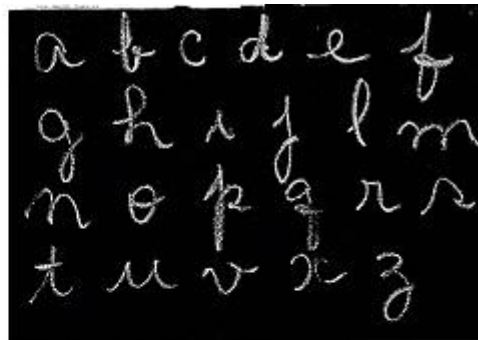 a b c d e f
g h i j l m
n o p q r s
t u v x z